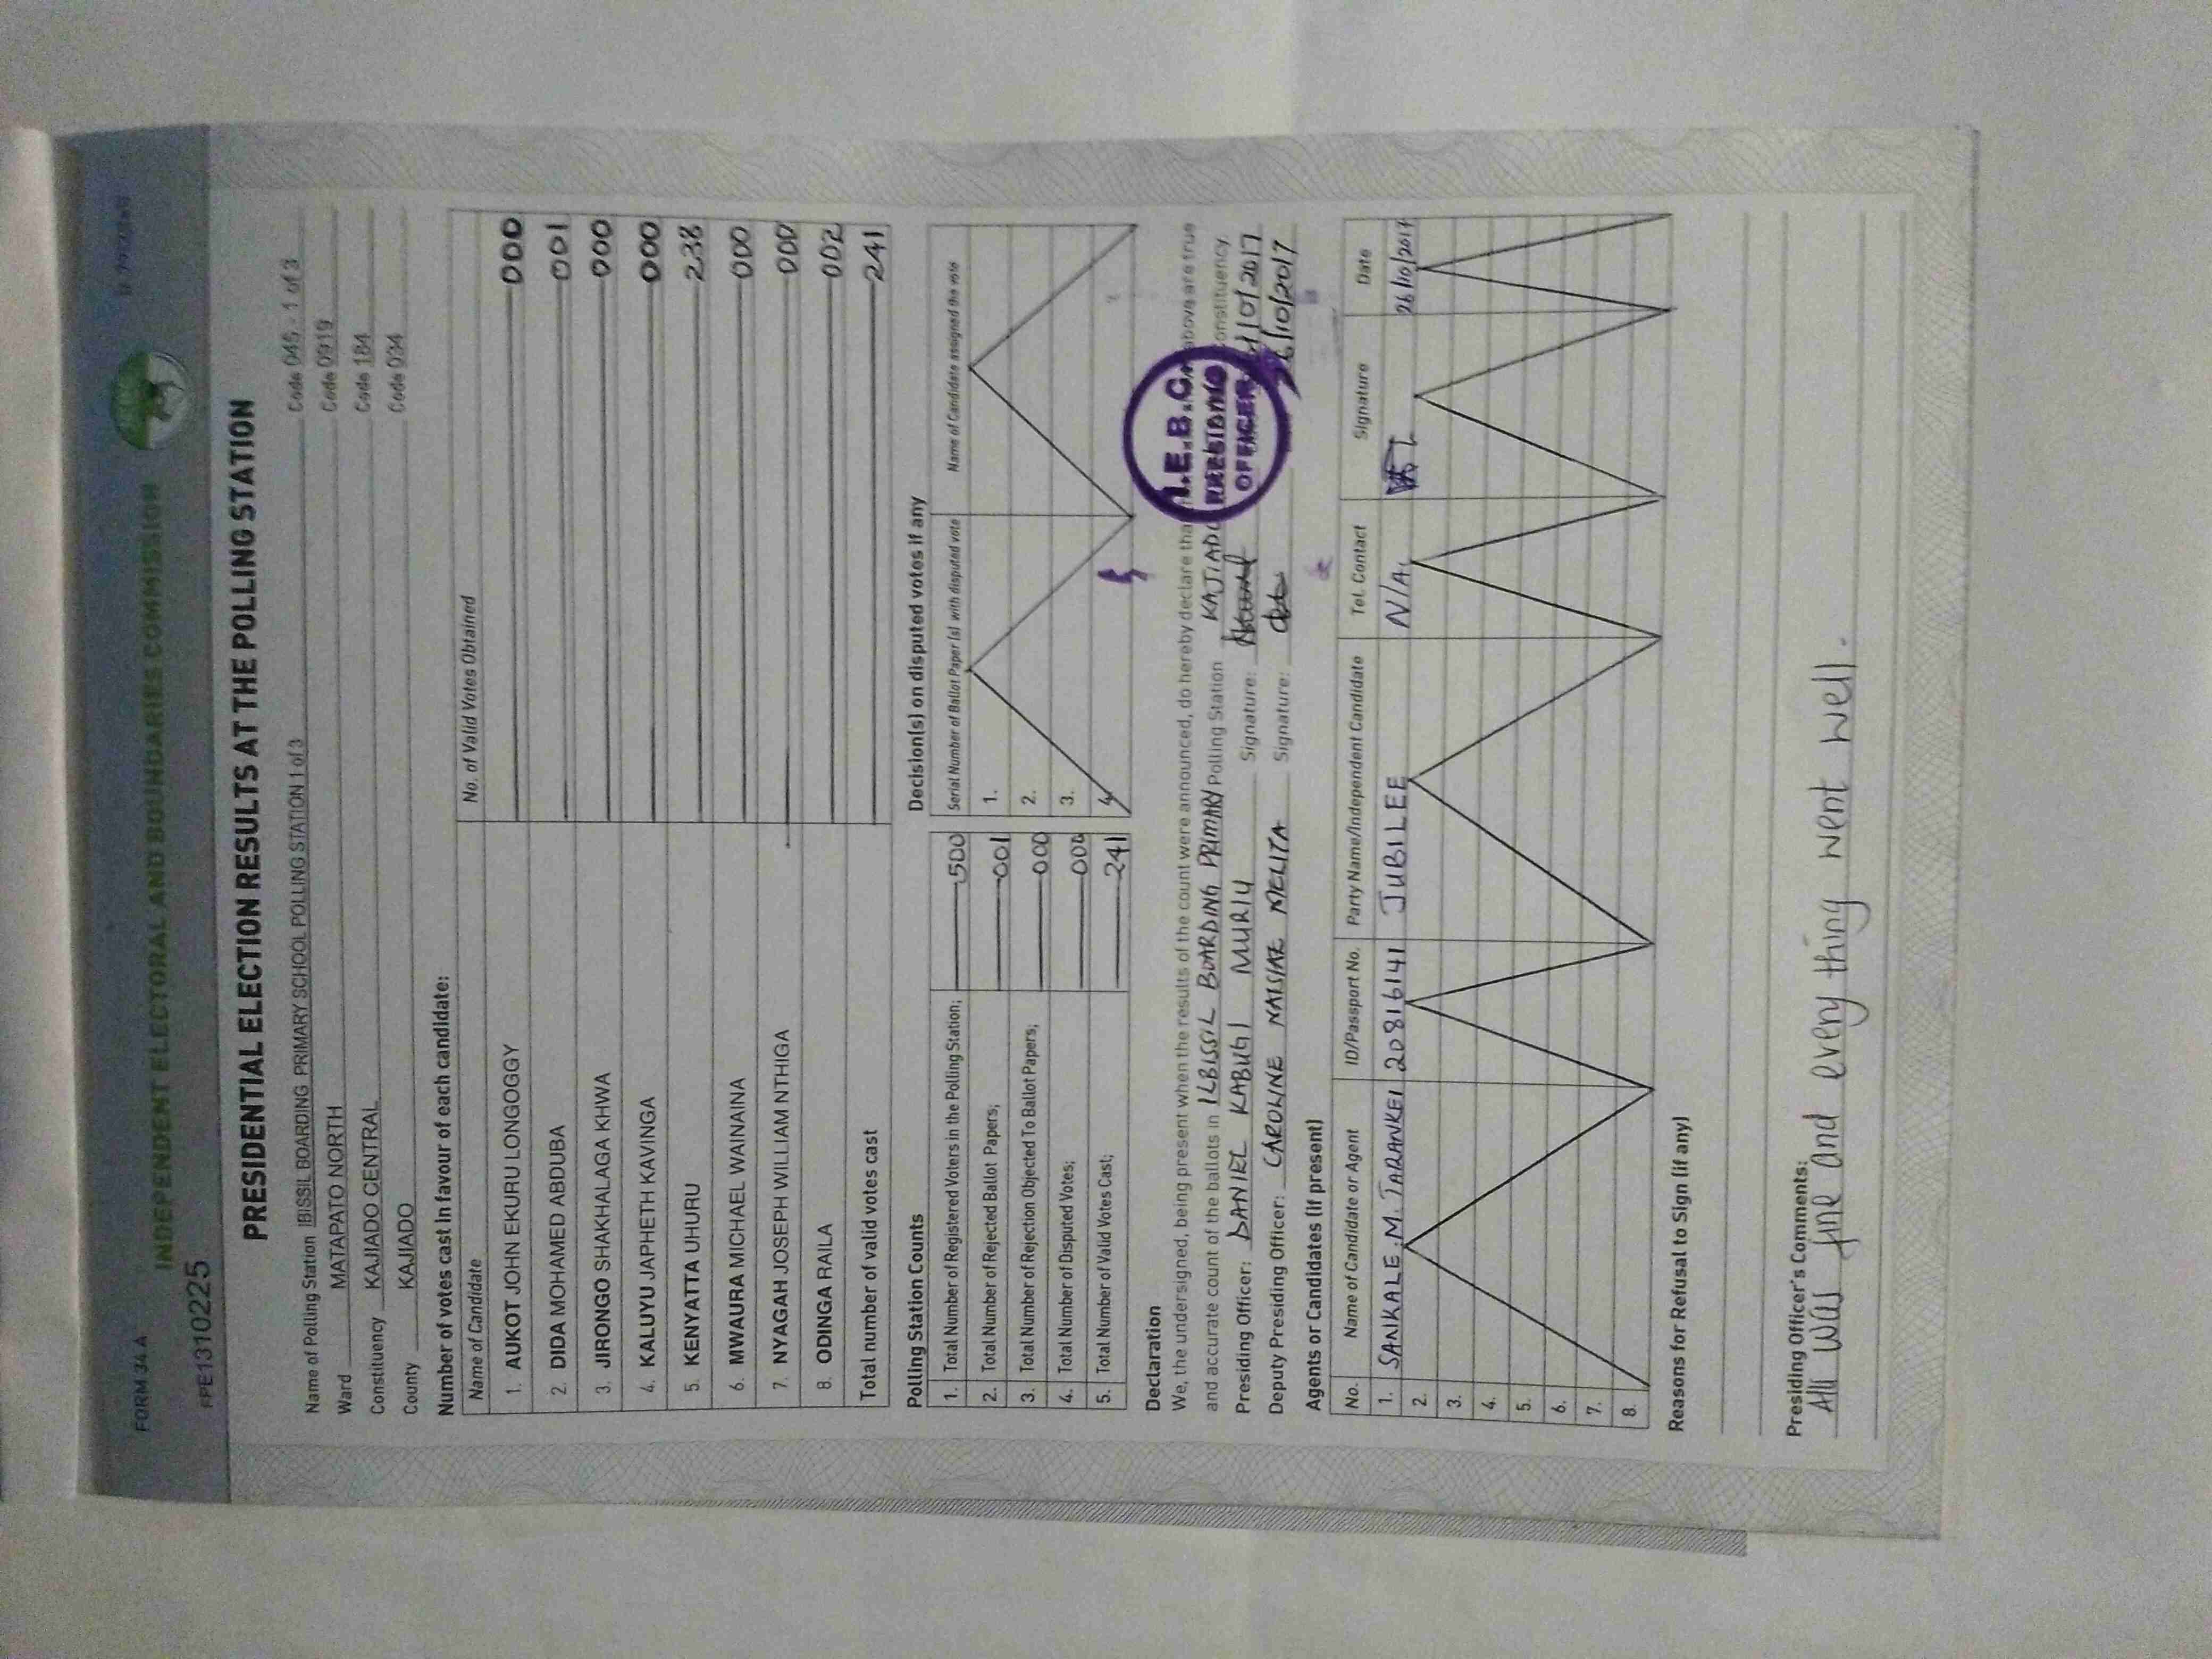 FORM 34 A
INDEPENDENT ELECTORAL AND BOUNDARIES COMMISSION
PPE1310225
PRESIDENTIAL ELECTION RESULTS AT THE POLLING STATION
Name of Polling Station IBISSIL BOARDING PRIMARY SCHOOL POLLING STATION 1 of 3 Code 045 - 1 of 3
Ward MATAPATO NORTH Code 0919
Constituency KAJIADO CENTRAL Code 184
County KAJIADO Code 034
Number of votes cast in favour of each candidate:
Name of Candidate No. of Valid Votes Obtained
1. AUKOT JOHN EKURU LONGOGGY 000
2. DIDA MOHAMED ABDUBA 001
3. JIRONGO SHAKHALAGA KHWA 000
4. KALUYU JAPHETH KAVINGA 000
5. KENYATTA UHURU 238
6. MWAURA MICHAEL WAINAINA 000
7. NYAGAH JOSEPH WILLIAM NTHIGA 000
8. ODINGA RAILA 002
Total number of valid votes cast 241
Polling Station Counts
1. Total Number of Registered Voters in the Polling Station; 500
2. Total Number of Rejected Ballot Papers; 001
3. Total Number of Rejection Objected To Ballot Papers; 000
4. Total Number of Disputed Votes; 000
5. Total Number of Valid Votes Cast; 241
Decision(s) on disputed votes if any
Serial Number of Ballot Paper (s) with disputed vote Name of Candidate assigned the vote
1.
2.
3.
4.
Declaration
We, the undersigned, being present when the results of the count were announced, do hereby declare that above are true
and accurate count of the ballots in ILBISSIL BOARDING PRIMARY Polling Station KAJIADO Constituency.
Presiding Officer: DANIEL KABUGI MURIU Signature: /10/2017
Deputy Presiding Officer: CAROLINE NAISIAE MELITA Signature: 26/10/2017
I.E.B.C.
PRESIDING
OFFICER
Agents or Candidates (if present)
No. Name of Candidate or Agent ID/Passport No. Party Name/Independent Candidate Tel. Contact Signature Date
1. SANKALE .M. TARANKEI 20816141 JUBILEE N/A 26/10/2017
2.
3.
4.
5.
6.
7.
8.
Reasons for Refusal to Sign (if any)
Presiding Officer's Comments:
All was fine and every thing went well.